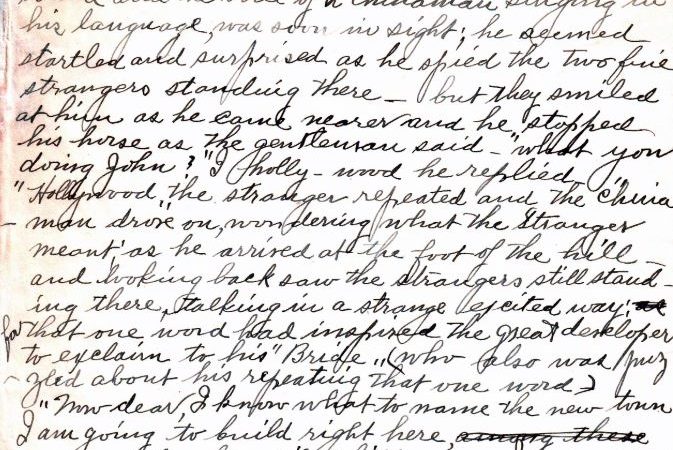 of a Chinaman singing in
his language, was soon in sight; he seemed
startled and surprised as he spied the two fine
strangers standing there — but they smiled
at him as he came nearer and he stopped
his horse as the gentleman said — "what you
doing John?" "I holly-wood he replied
"Hollywood", the stranger repeated and the China
- man drove on, wondering what the Stranger
meant, as he arrived at the foot of the hill —
and looking back saw the strangers still stand-
ing there, talking in a strange excited way;
for that one word had inspired the great developer
to exclaim to his "Bride", (who also was puz
- zled about his repeating that one word)
"Now dear, I know what to name the new town
I am going to build right here, among these